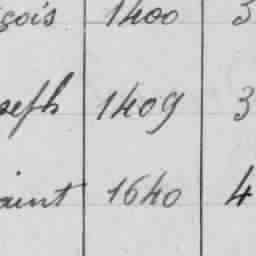 çois 1400 3
oseph 1409 3
aint 1640 4